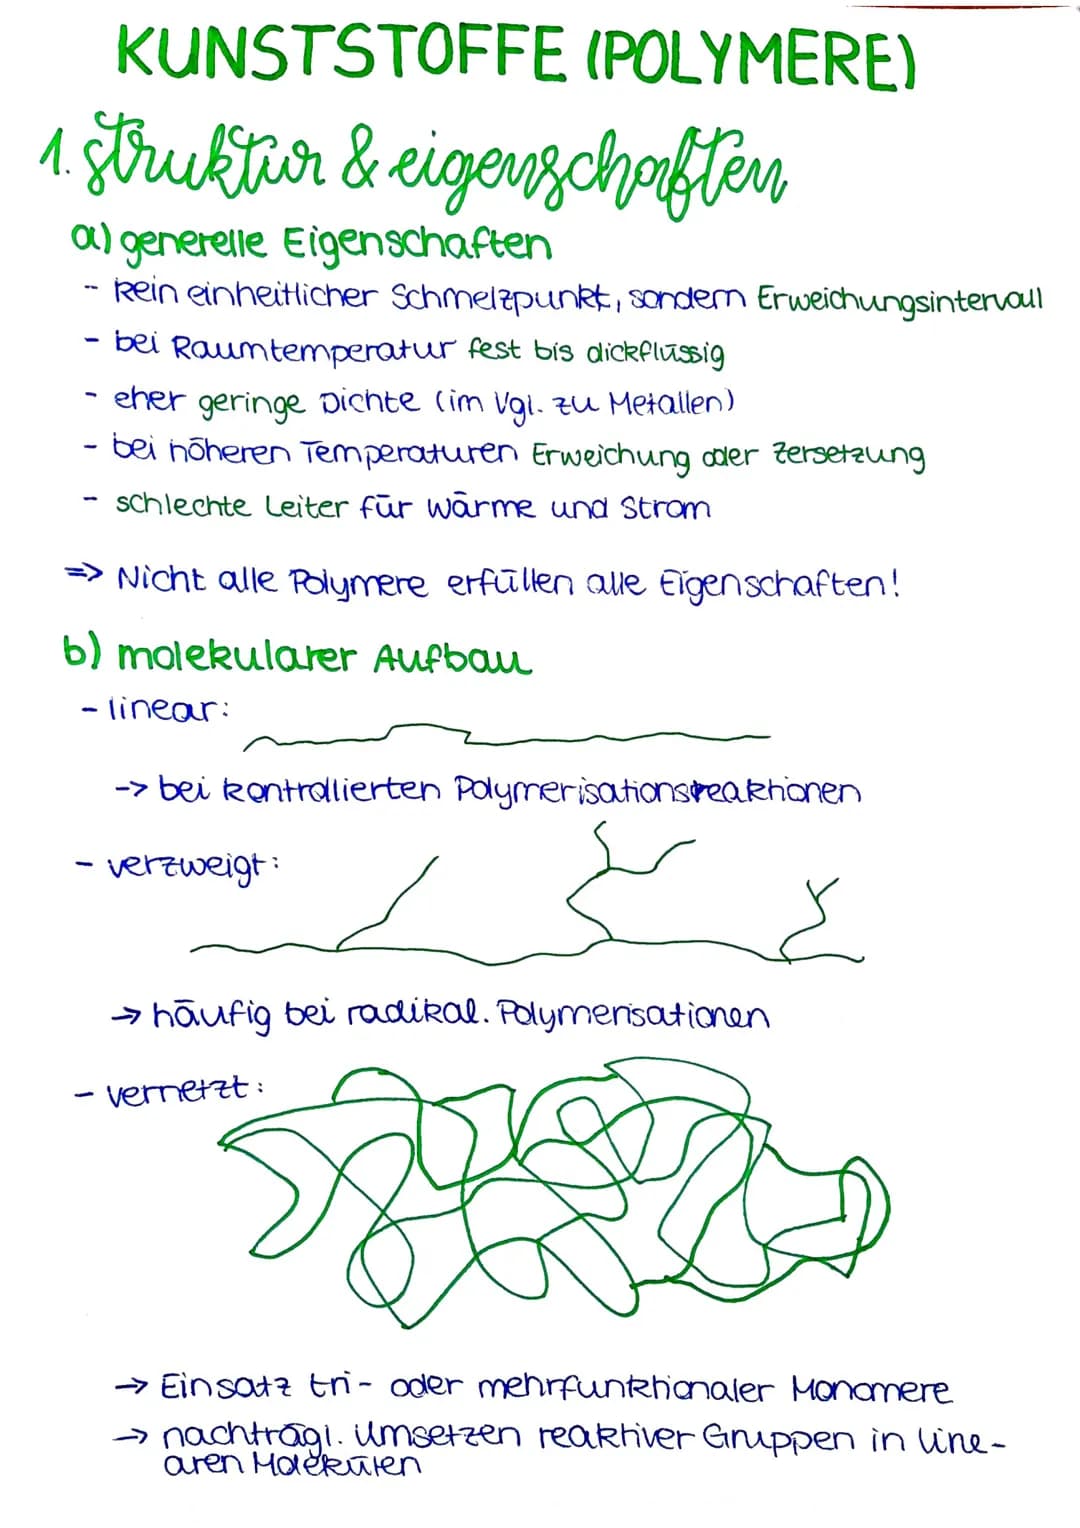 KUNSTSTOFFE (POLYMERE)
1. struktur & eigenschaften
a) generelle Eigenschaften
- kein einheitlicher Schmelzpunkt, sondern Erweichungsintervall
- bei Raumtemperatur fest bis dickflüssig
- eher geringe Dichte (im Vgl. zu Metallen)
- bei höheren Temperaturen Erweichung oder Zersetzung
- schlechte Leiter für Wärme und Strom
=> Nicht alle Polymere erfüllen alle Eigenschaften!
b) molekularer Aufbau
- linear:
-> bei kontrollierten Polymerisationsreaktionen
- verzweigt:
→ häufig bei radikal. Polymerisationen
- vernetzt:
→ Einsatz tri- oder mehrfunktionaler Monomere
→ nachträgl. Umsetzen reaktiver Gruppen in line-
aren Molekülen